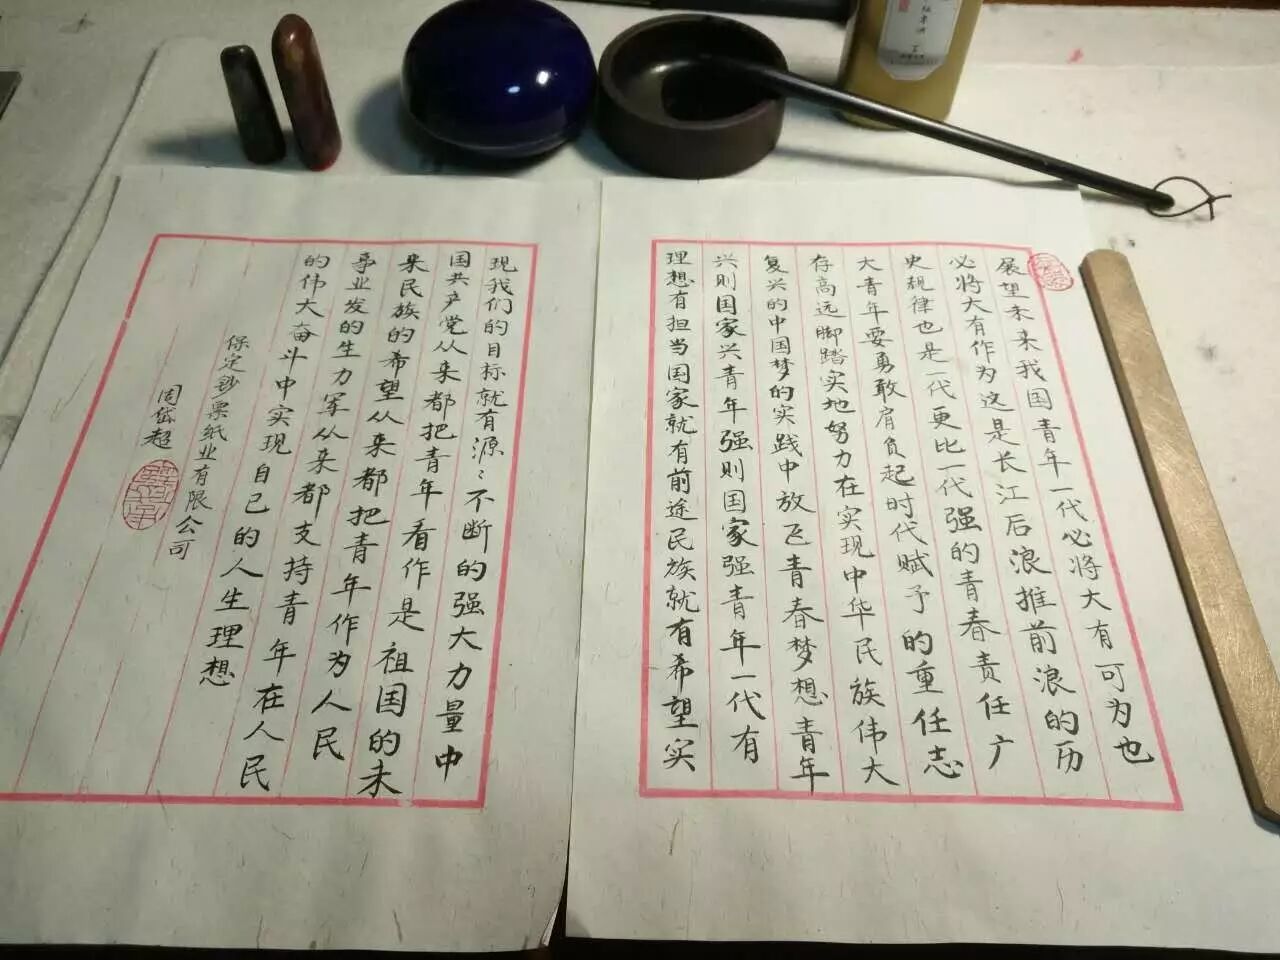 展望未来我国青年一代必将大有可为也
必将大有作为这是长江后浪推前浪的历
史规律也是一代更比一代强的青春责任广
大青年要勇敢肩负起时代赋予的重任志
存高远脚踏实地努力在实现中华民族伟大
复兴的中国梦的实践中放飞青春梦想青年
兴则国家兴青年强则国家强青年一代有
理想有担当国家就有前途民族就有希望实
现我们的目标就有源〻不断的强大力量中
国共产党从来都把青年看作是祖国的未
来民族的希望从来都把青年作为人民
事业发的生力军从来都支持青年在人民
的伟大奋斗中实现自己的人生理想
保定钞票纸业有限公司
周岱超